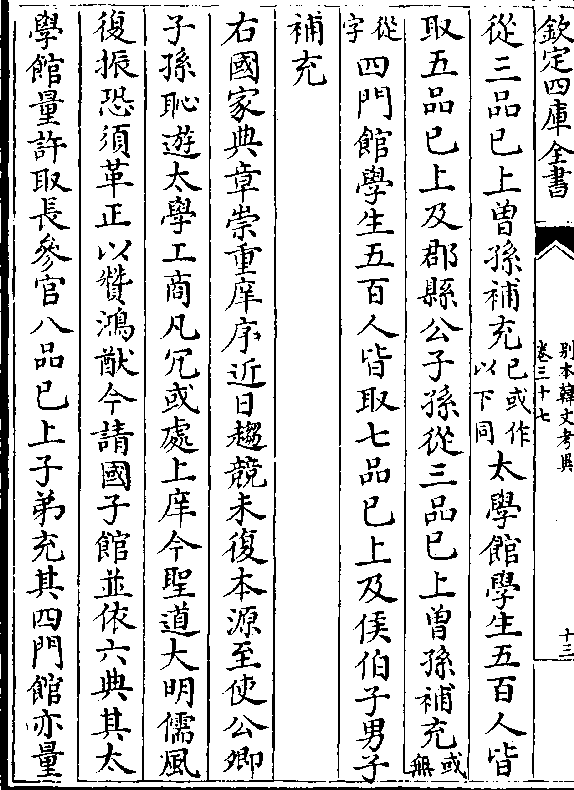 欽定四庫全書
别本韓文考異
卷三十七
十三
從三品已上曽孫補充已或作以下同太學館學生五百人皆
取五品已上及郡縣公子孫從三品已上曽孫補充或無
從字四門館學生五百人皆取七品已上及侯伯子男子
補充
右國家典章崇重庠序近日趨競未復本源至使公卿
子孫恥遊太學工商凡冗或處上庠今聖道大明儒風
復振恐須革正以贊鴻猷今請國子館並依六典其太
學館量許取長參官八品已上子弟充其四門館亦量